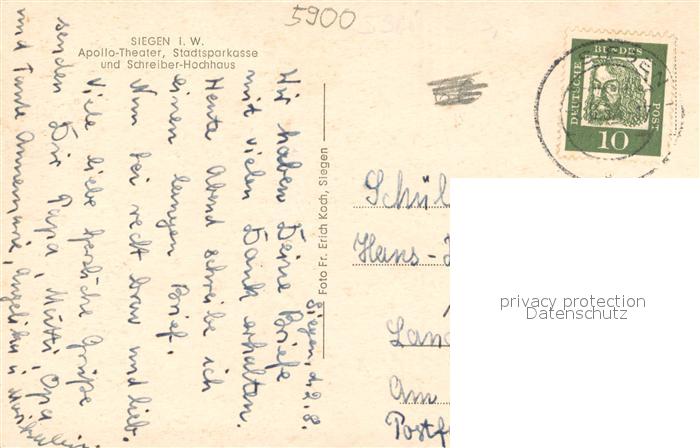 5900
SIEGEN I. W.
Apollo-Theater, Stadtsparkasse
und Schreiber-Hochhaus
Siegen, d. 2.8.
Wir haben Deine Briefe
mit vielen Dank erhalten.
Heute Abend schreibe ich
einen langen Brief.
Nun sei recht brav und lieb.
Viele liebe herzliche Grüße
senden Dir Papa, Mutti, Opa
und Tante Annemarie, Angelika u.
Foto Fr. Erich Koch, Siegen
DEUTSCHE BUNDES POST
10
SIEGEN
Schül
Hans-
Lan
Am
Postf
privacy protection
Datenschutz